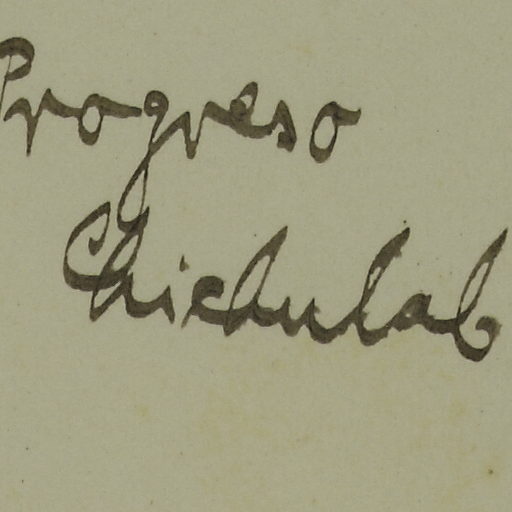 Progreso
Chichulab